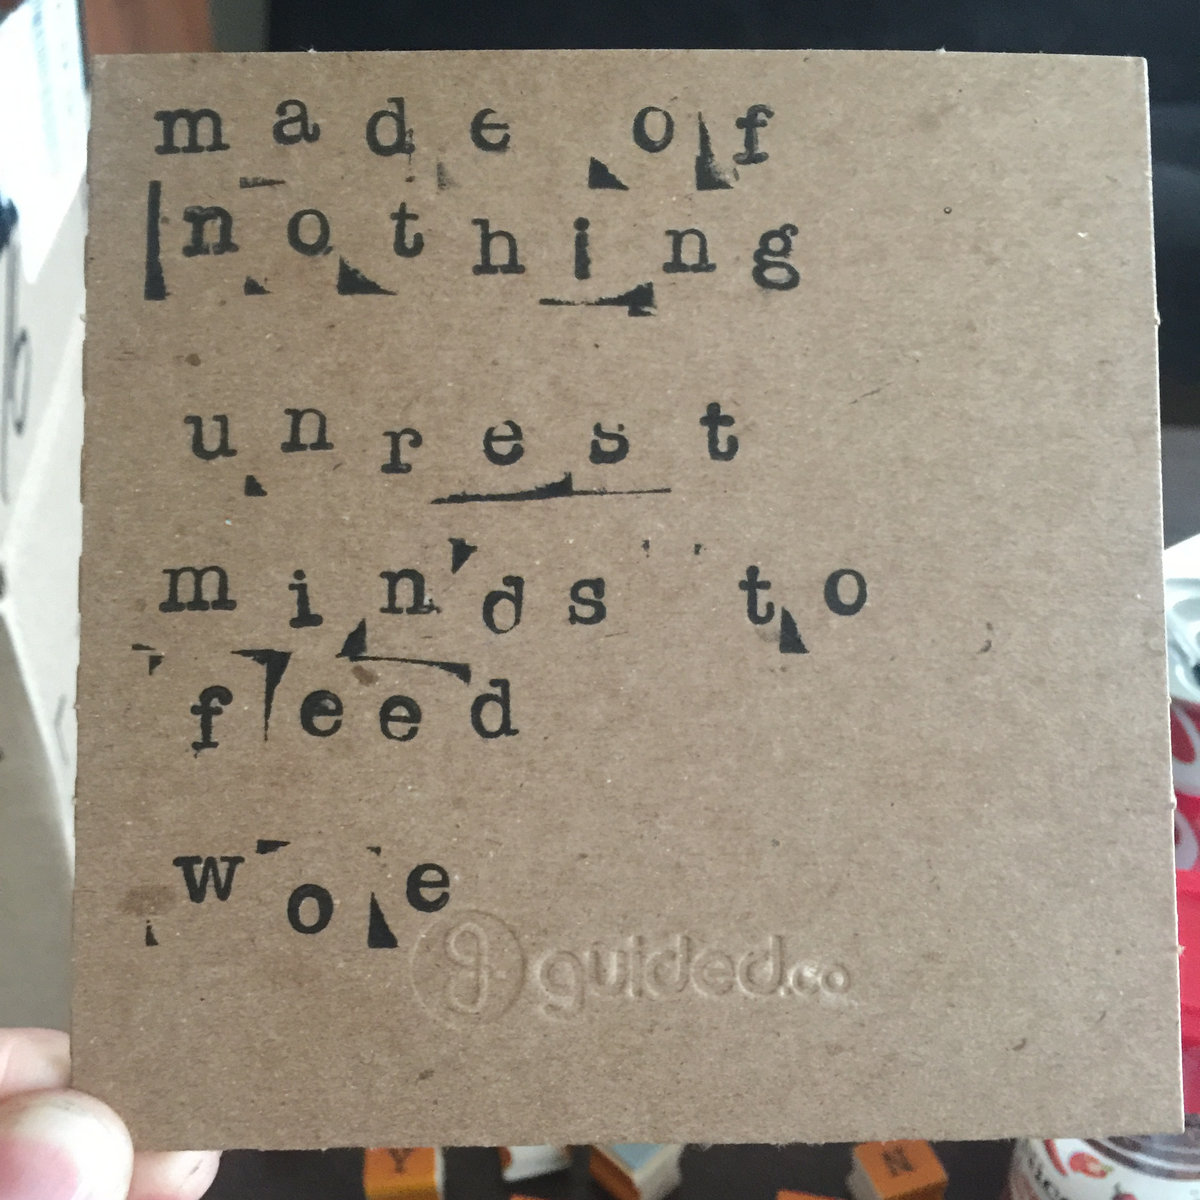 made of
nothing
unrest
minds to
feed
woe
guided.co
Y
N